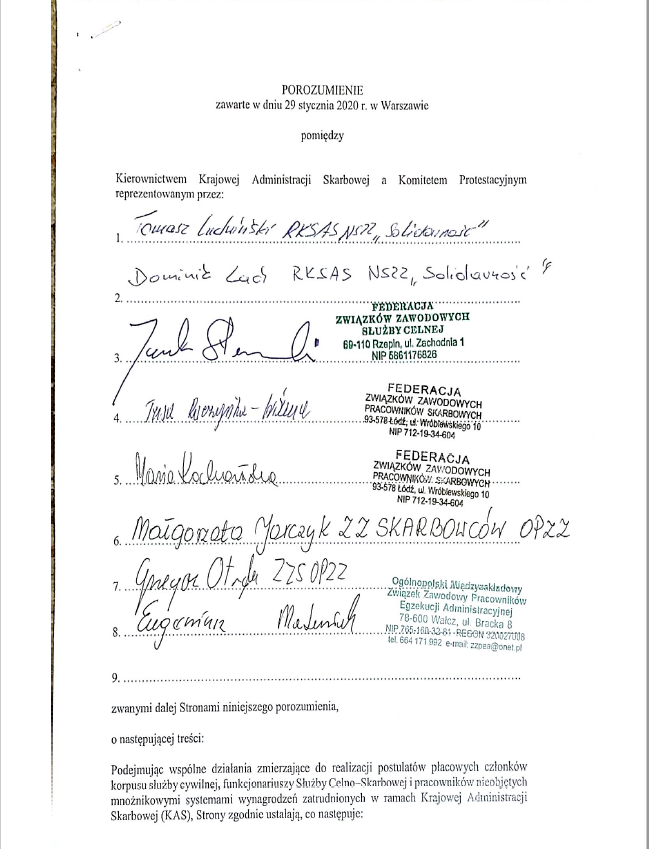 POROZUMIENIE
zawarte w dniu 29 stycznia 2020 r. w Warszawie
pomiędzy
Kierownictwem Krajowej Administracji Skarbowej a Komitetem Protestacyjnym
reprezentowanym przez:
1. Tomasz Ludwiński RKSAS NSZZ „Solidarność”
2. Dominik Lach RKSAS NSZZ „Solidarność”
FEDERACJA
ZWIĄZKÓW ZAWODOWYCH
SŁUŻBY CELNEJ
69-110 Rzepin, ul. Zachodnia 1
NIP 5861176826
3.
FEDERACJA
ZWIĄZKÓW ZAWODOWYCH
PRACOWNIKÓW SKARBOWYCH
93-578 Łódź, ul. Wróblewskiego 10
NIP 712-19-34-604
4.
FEDERACJA
ZWIĄZKÓW ZAWODOWYCH
PRACOWNIKÓW SKARBOWYCH
93-578 Łódź, ul. Wróblewskiego 10
NIP 712-19-34-604
5. Maria
6. Małgorzata Jarczyk ZZ SKARBOWCÓW OPZZ
7. ZZS OPZZ
Ogólnopolski Międzyzakładowy
Związek Zawodowy Pracowników
Egzekucji Administracyjnej
78-600 Wałcz, ul. Bracka 8
tel. 664 171 992 e-mail: zzpea@onet.pl
8. Eugeniusz
9.
zwanymi dalej Stronami niniejszego porozumienia,
o następującej treści:
Podejmując wspólne działania zmierzające do realizacji postulatów płacowych członków
korpusu służby cywilnej, funkcjonariuszy Służby Celno–Skarbowej i pracowników nieobjętych
mnożnikowymi systemami wynagrodzeń zatrudnionych w ramach Krajowej Administracji
Skarbowej (KAS), Strony zgodnie ustalają, co następuje: